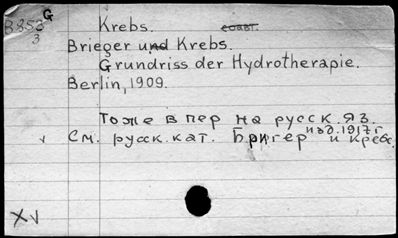 G
B853 Krebs. соавт.
3
Brieger und Krebs.
Grundriss der Hydrotherapie.
Berlin, 1909.
Тоже в пер на русск. яз.
изд. 1917 г
v См. русск. кат. Бригер и Кребс.
XV